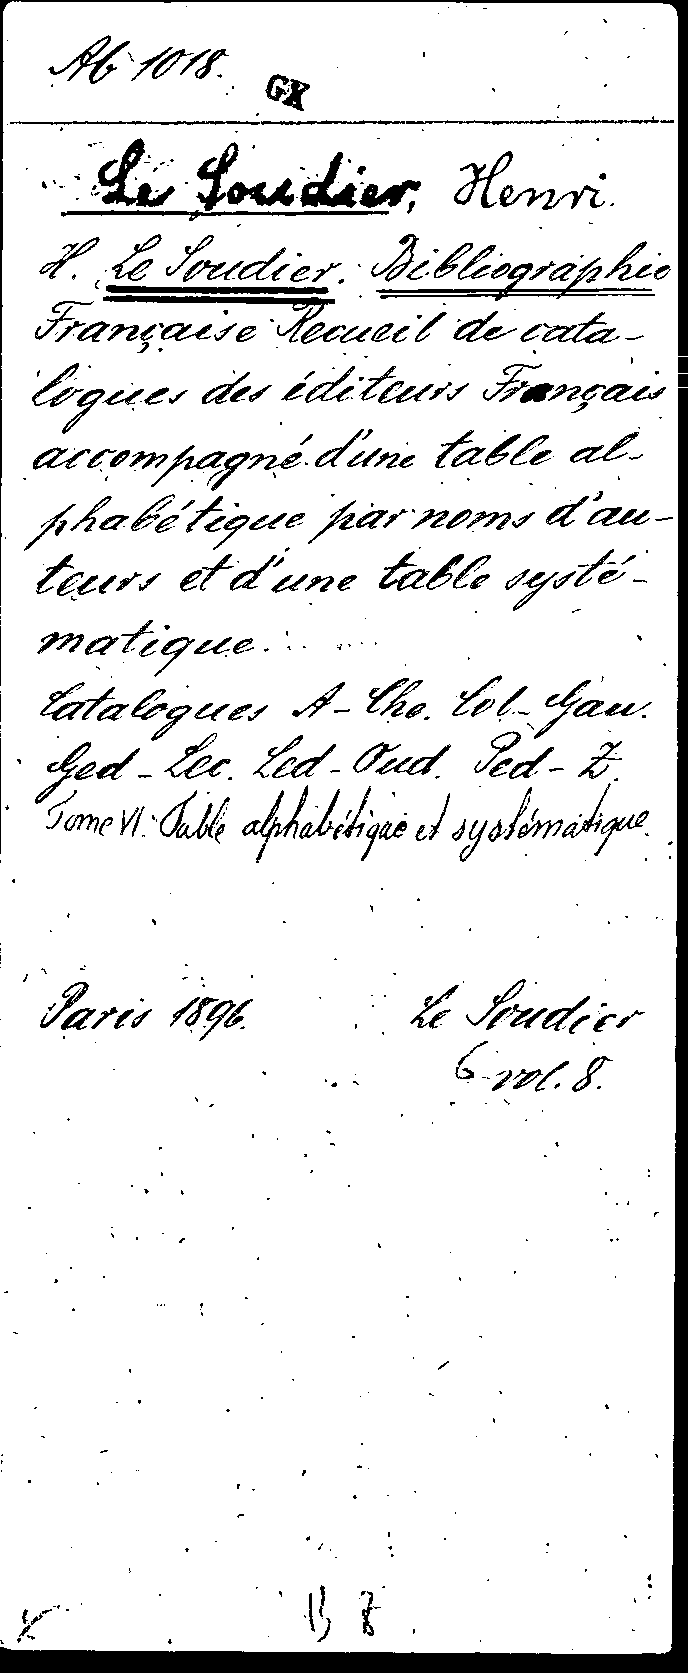 Ab 1018.
GX
Le Soudier, Henri.
H. Le Soudier. Bibliographie
Française Recueil de cata-
logues des éditeurs Français
accompagné d'une table al-
phabétique par noms d'au-
teurs et d'une table systé-
matique.
Catalogues A-Che. Col-Gau.
Ged-Lec. Led-Oud. Ped-Z.
Tome VI. Table alphabétique et systématique.
Paris 1896. Le Soudier
6 vol. 8.